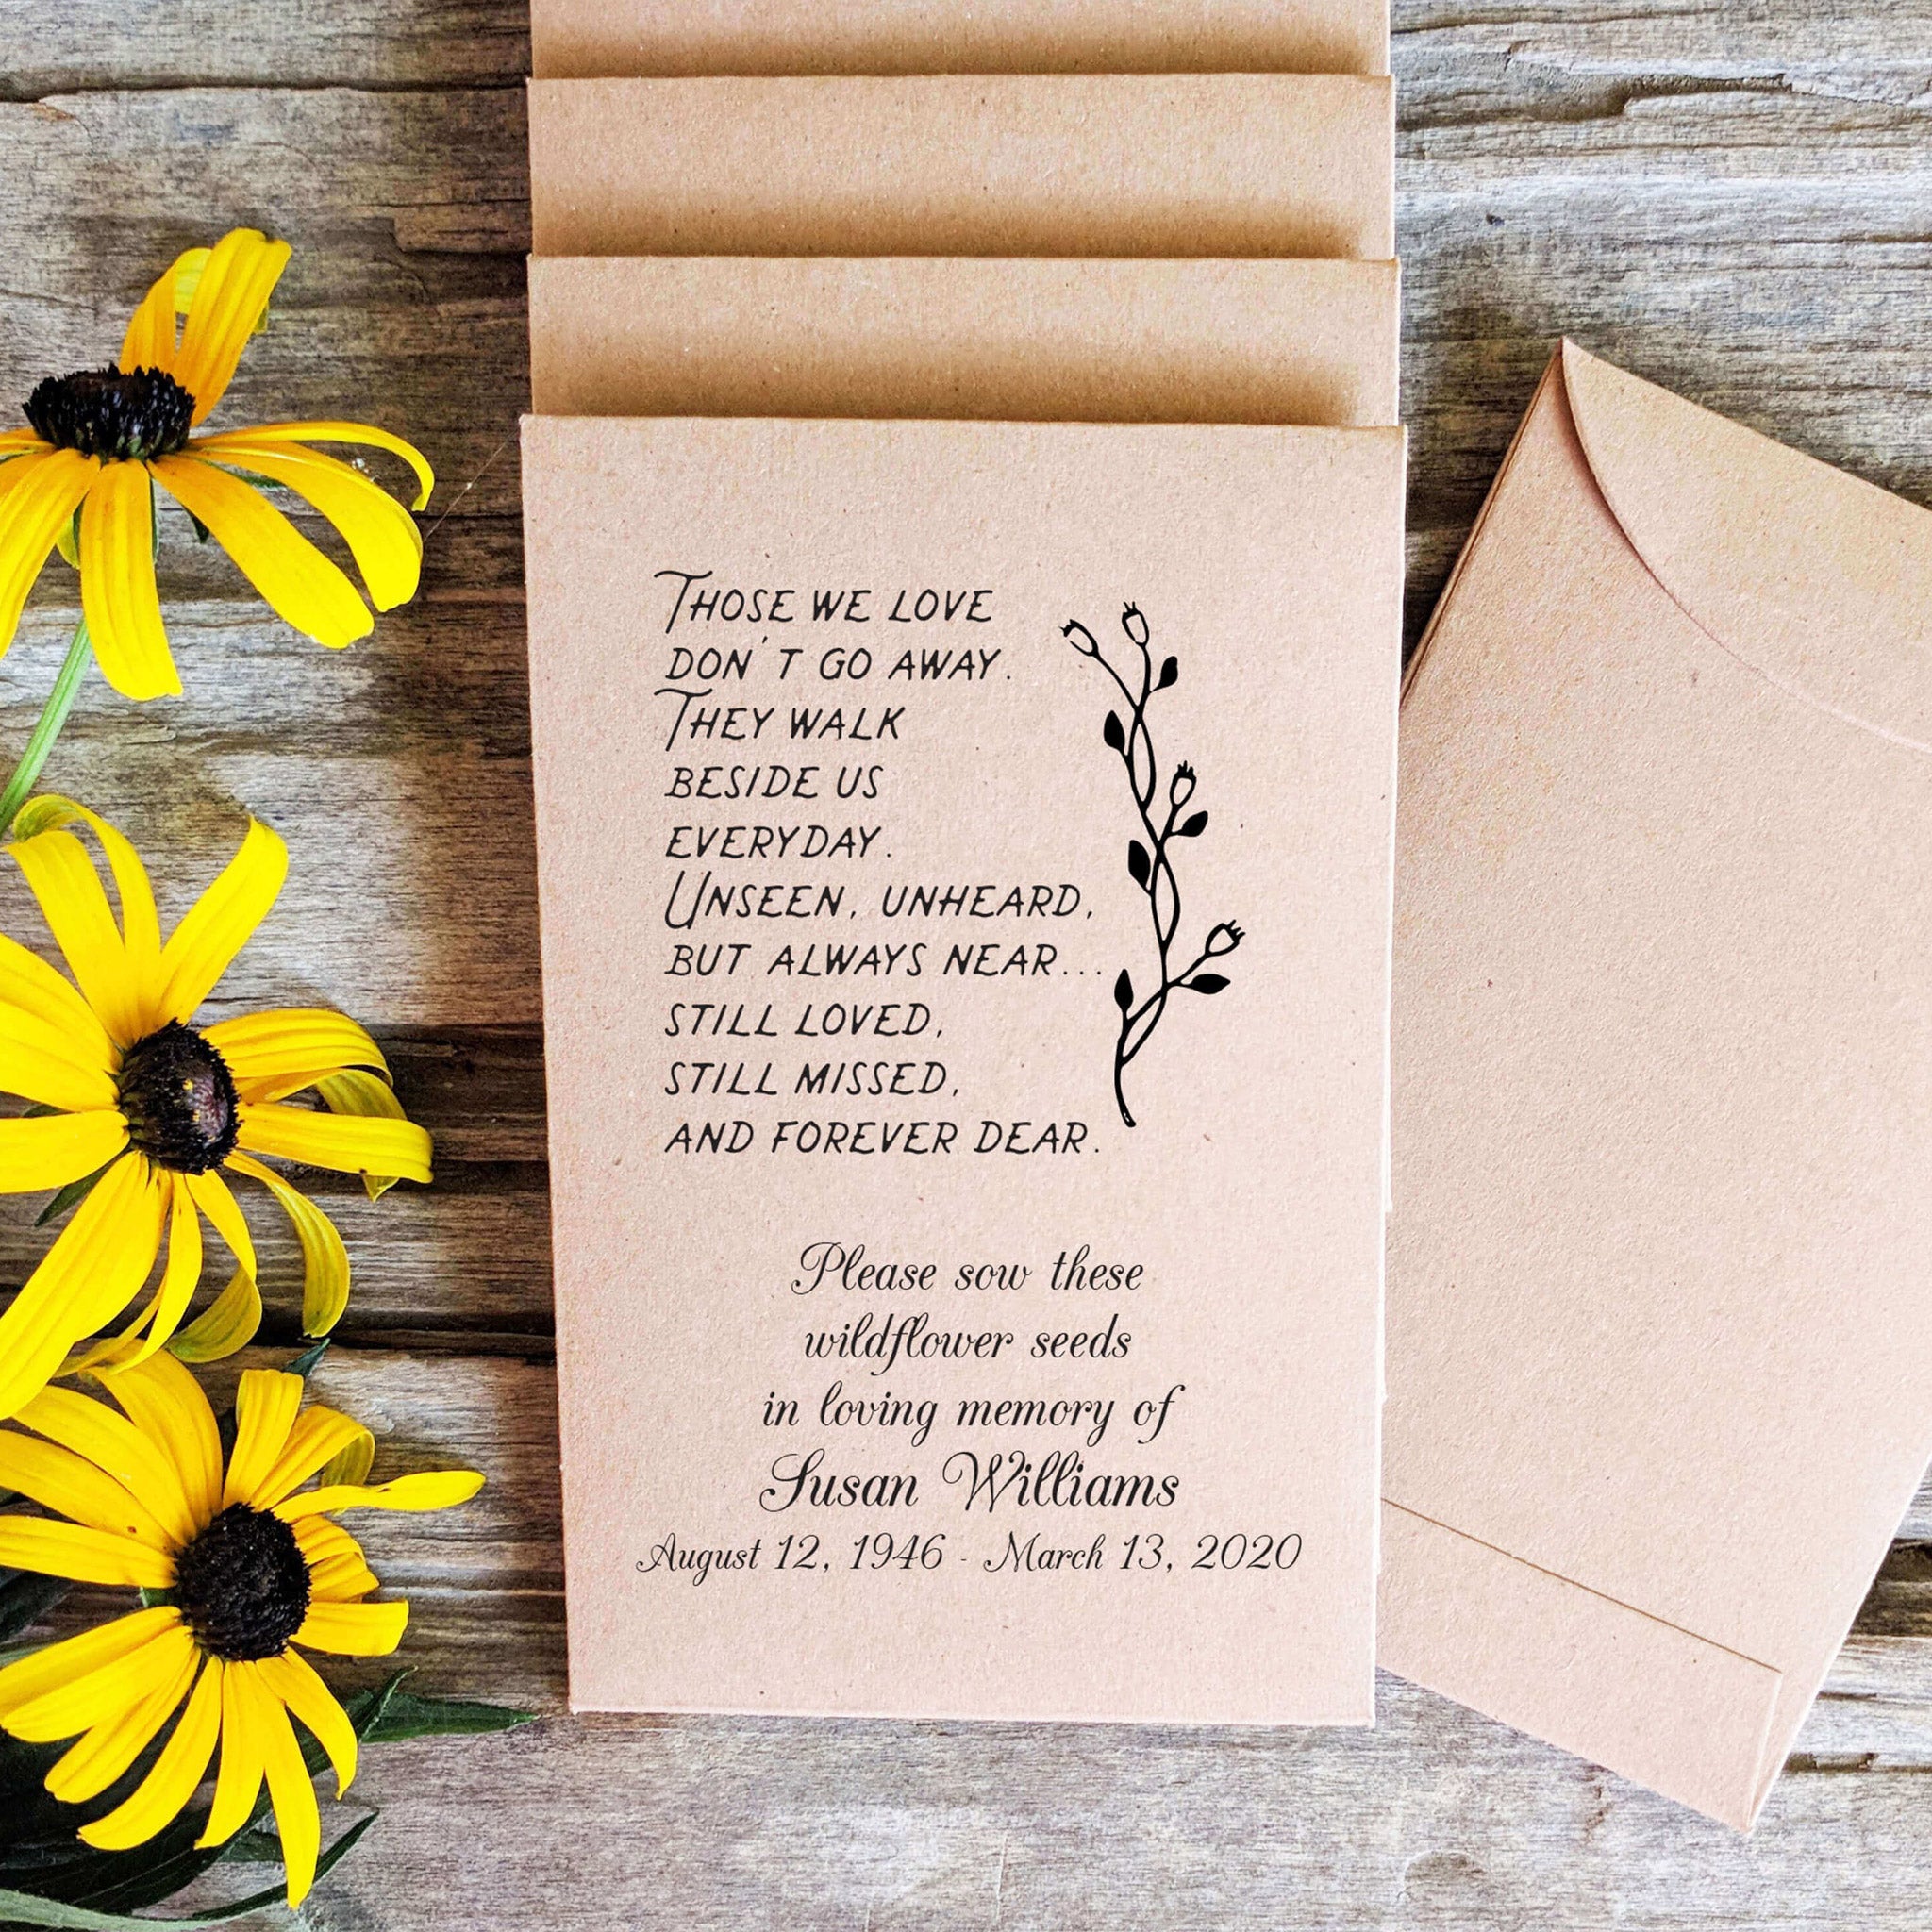 Those we love
don't go away.
They walk
beside us
everyday.
Unseen, unheard,
but always near...
still loved,
still missed,
and forever dear.
Please sow these
wildflower seeds
in loving memory of
Susan Williams
August 12, 1946 - March 13, 2020